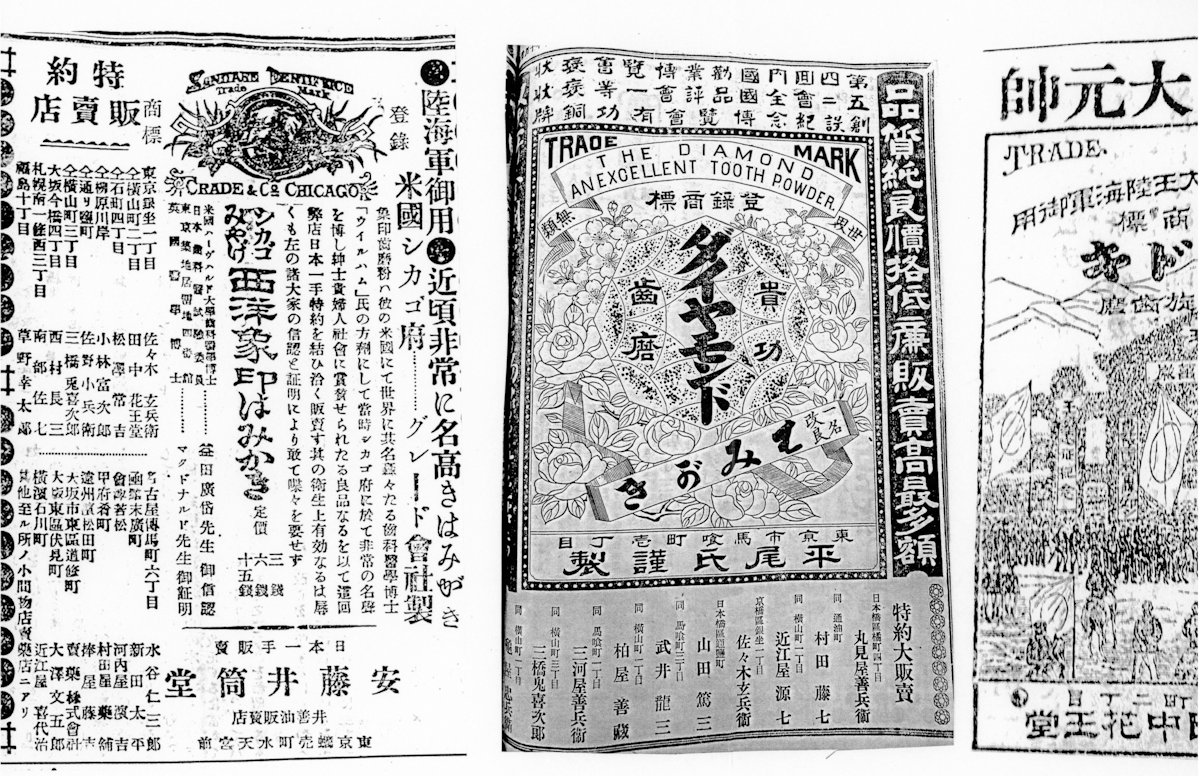 陸海軍御用●近頃非常に名高きはみがき
米國シカゴ府………グレード會社製
登錄
商標
SUNDARE DENTIFRICE
Trade Mark
CRADE & Co CHICAGO
象印歯磨粉ハ彼の米國にて世界に其名轟々たる歯科醫學博士
「ウイルハム」氏の方劑にして當時シカゴ府に於て非常の名聲
を博し紳士貴婦人社會に賞賛せられたる良品なるを以て這回
弊店日本一手特約を結ひ洽く販賣す其の衛生上有効なるは辱
くも左の諸大家の信認と証明により敢て喋々を要せず
シカゴみやげ
西洋象印はみかき
定價
三錢
六錢
十五錢
米國ハーヴハルド大學齒科醫學博士
日本齒科醫試驗委員
益田廣岱先生御信認
東京築地居留地四番館
英國醫學博士
マクドナルド先生御証明
日本一手販賣
安藤井筒堂
井善油販賣店
東京蠣売町水天宮前
特約販賣店
東京銀坐一丁目 佐々木玄兵衛
仝横山町二丁目 田中花王堂
仝石町四丁目 松澤常吉
仝柳原川岸 小林富次郎
仝通り鹽町 佐野小兵衛
仝横山町三丁目 三橋兎喜次郎
大坂今橋四丁目 西村長三
札幌南一條西三丁目 南部佐七
福島十丁目 草野幸太郎
名古屋傳馬町六丁目 水谷仁三郎
國末廣町 新田太平
會津若松 河内屋濱吉
甲府肴町 村田藥舗
遠州濱松田町 棒屋藤吉
大坂市東區道修町 賣藥株式會社
大坂東區伏見町 大澤文五郎
横濱石川町 近江屋喜代治
其他至ル所ノ小間物店賣藥店ニアリ
品質純良價格低廉販賣高最多額
第五囬内國勸業博覽會等褒狀
四二會全國品評會一功銅牌
TRADE MARK
THE DIAMOND
AN EXCELLENT TOOTH POWDER.
登錄商標
世界無類
ダイヤモンド
貴功
齒磨
一名改良
はみがき
東京市馬喰町壱丁目
平尾氏謹製
特約大販賣
日本橋區橘町四丁目 丸見屋善兵衛
同 通油町 村田藤七
同 横山町二丁目 近江屋源七
京橋區銀坐一丁目 佐々木玄兵衛
日本橋區通鹽町 山田篤三
同 馬喰町二丁目 武井龍三
同 横山町一丁目 柏屋善蔵
同 馬喰町一丁目 三河屋善兵衛
同 横山町三丁目 三橋兎喜次郎
同 横山町二丁目
大元帥
TRADE.
大王陸海軍御用
商標
ドキ
齒磨
町二丁目
中花王堂